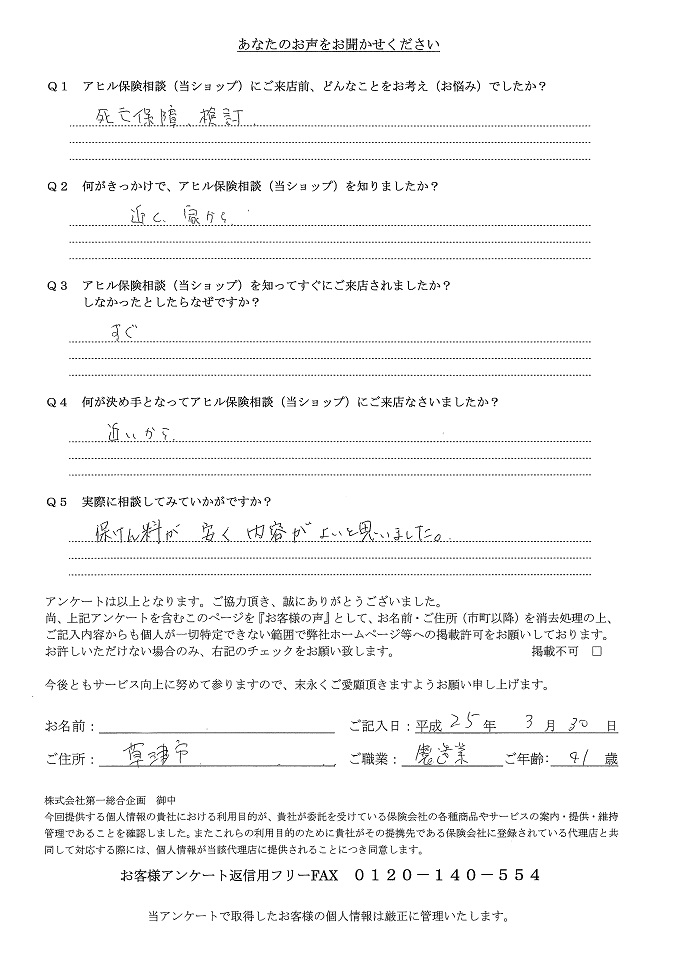 あなたのお声をお聞かせください
Q1 アヒル保険相談（当ショップ）にご来店前、どんなことをお考え（お悩み）でしたか？
死亡保障、検討.
Q2 何がきっかけで、アヒル保険相談（当ショップ）を知りましたか？
近く、家から
Q3 アヒル保険相談（当ショップ）を知ってすぐにご来店されましたか？
しなかったとしたらなぜですか？
すぐ
Q4 何が決め手となってアヒル保険相談（当ショップ）にご来店なさいましたか？
近いから.
Q5 実際に相談してみていかがですか？
保けん料が 安く 内容がよいと思いました。
アンケートは以上となります。ご協力頂き、誠にありがとうございました。
尚、上記アンケートを含むこのページを『お客様の声』として、お名前・ご住所（市町以降）を消去処理の上、
ご記入内容からも個人が一切特定できない範囲で弊社ホームページ等への掲載許可をお願いしております。
お許しいただけない場合のみ、右記のチェックをお願い致します。 掲載不可 □
今後ともサービス向上に努めて参りますので、末永くご愛顧頂きますようお願い申し上げます。
お名前： ご記入日：平成 25 年 3 月 30 日
ご住所： 草津市 ご職業： 製造業 ご年齢： 41 歳
株式会社第一総合企画 御中
今回提供する個人情報の貴社における利用目的が、貴社が委託を受けている保険会社の各種商品やサービスの案内・提供・維持
管理であることを確認しました。またこれらの利用目的のために貴社がその提携先である保険会社に登録されている代理店と共
同して対応する際には、個人情報が当該代理店に提供されることにつき同意します。
お客様アンケート返信用フリーFAX ０１２０－１４０－５５４
当アンケートで取得したお客様の個人情報は厳正に管理いたします。